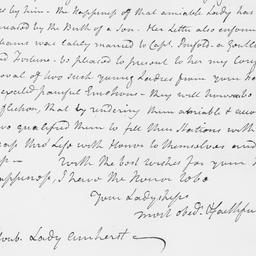 by him - the Happiness of that amiable Lady has
by the Birth of a Son. Her Letter also
was lately married to Capt. Pinfold a
and Fortune. be pleased to present to her my
of two such young Ladies from your
painful Emotions - they will however
that by rendering them amiable &
qualified them to fill their Stations with
thro' Life with Honor to themselves and
With the best wishes for your
Happiness, I have the Honor to be
Your Ladyships
most obedt. & faithful
Lady Amherst